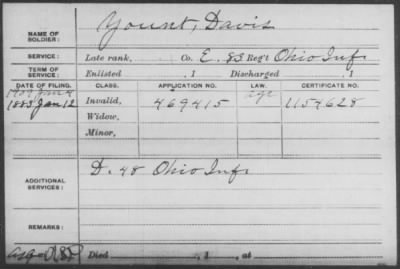 NAME OF SOLDIER: Yount, Davis
SERVICE: Late rank, Co. E. 83 Reg't Ohio Inf.
TERM OF SERVICE: Enlisted , 1 Discharged , 1
DATE OF FILING. CLASS. APPLICATION NO. LAW. CERTIFICATE NO.
1883 Jan 12 Invalid, 469415 age 1154628
Widow,
Minor,
ADDITIONAL SERVICES: D. 48 Ohio Inf.
REMARKS:
Died , 1 , at